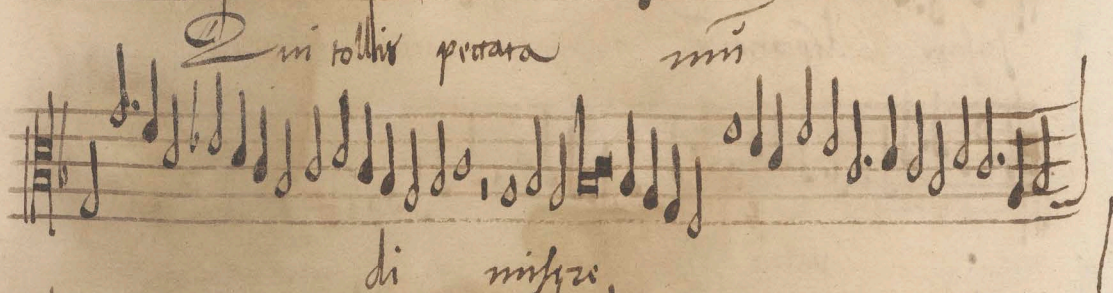 Qui tollis peccata mũ
di misere